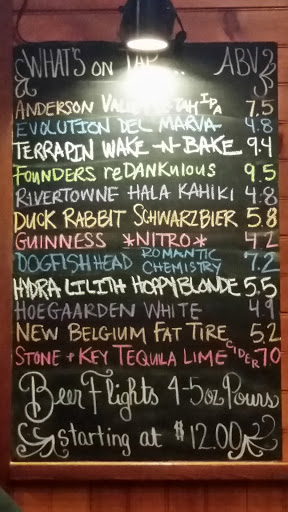 WHAT'S ON TAP... ABV
ANDERSON VALLEY HEH TAH IPA 7.5
EVOLUTION DEL MARVA 4.8
TERRAPIN WAKE-N-BAKE 9.4
FOUNDERS reDANKulous 9.5
RIVERTOWNE HALA KAHIKI 4.8
DUCK RABBIT SCHWARZBIER 5.8
GUINNESS *NITRO* 4.2
DOGFISH HEAD ROMANTIC CHEMISTRY 7.2
HYDRA LILITH HOPPY BLONDE 5.5
HOEGAARDEN WHITE 4.9
NEW BELGIUM FAT TIRE 5.2
STONE + KEY TEQUILA LIME CIDER 7.0
Beer Flights 4-5oz Pours
starting at $12.00